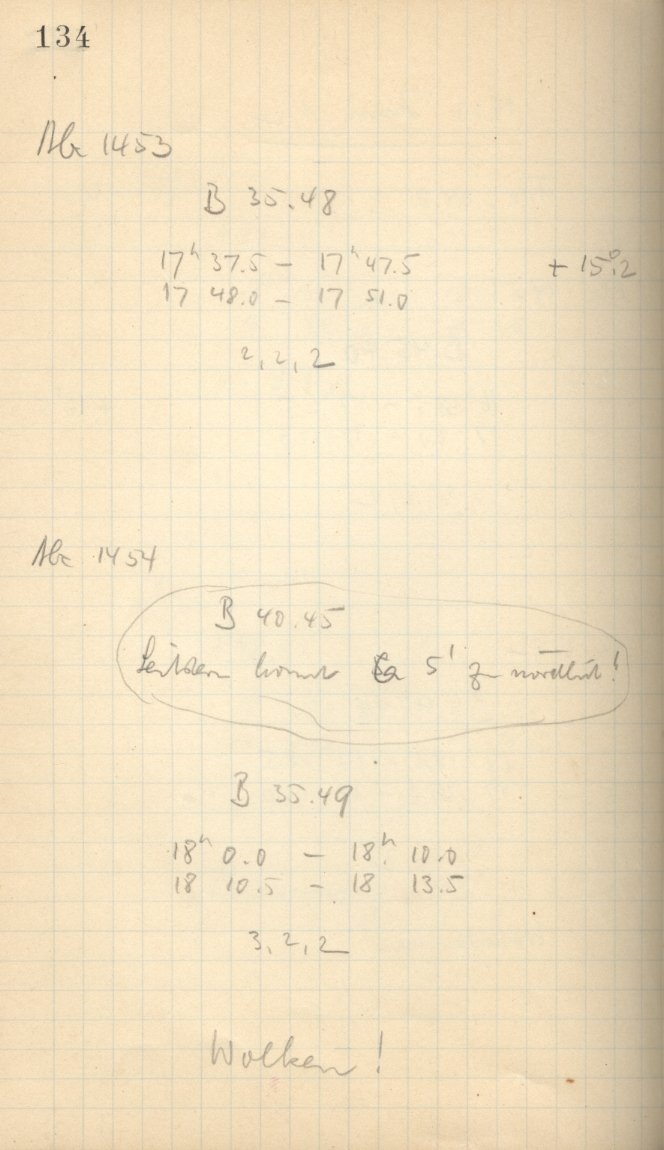 134
Abc 1453
B 35.48
17ʰ 37.5 – 17ʰ 47.5 + 15°.2
17 48.0 – 17 51.0
2, 2, 2
Abc 1454
B 40.45
Leitstern kommt 5' zu nördlich!
B 35.49
18ʰ 0.0 – 18ʰ 10.0
18 10.5 – 18 13.5
3, 2, 2
Wolken!